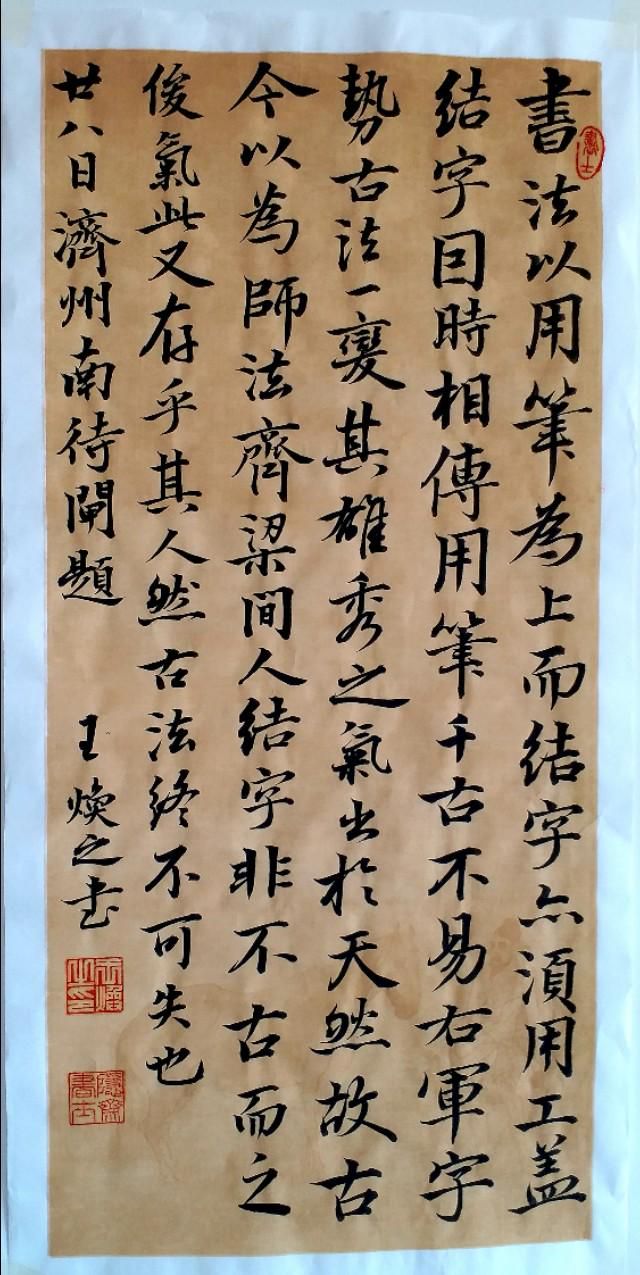 書法以用筆為上而結字亦須用工盖
結字因時相傳用筆千古不易右軍字
勢古法一變其雄秀之氣出於天然故古
今以為師法齊梁間人結字非不古而之
俊氣此又存乎其人然古法終不可失也
廿八日濟州南待閘題 王焕之書